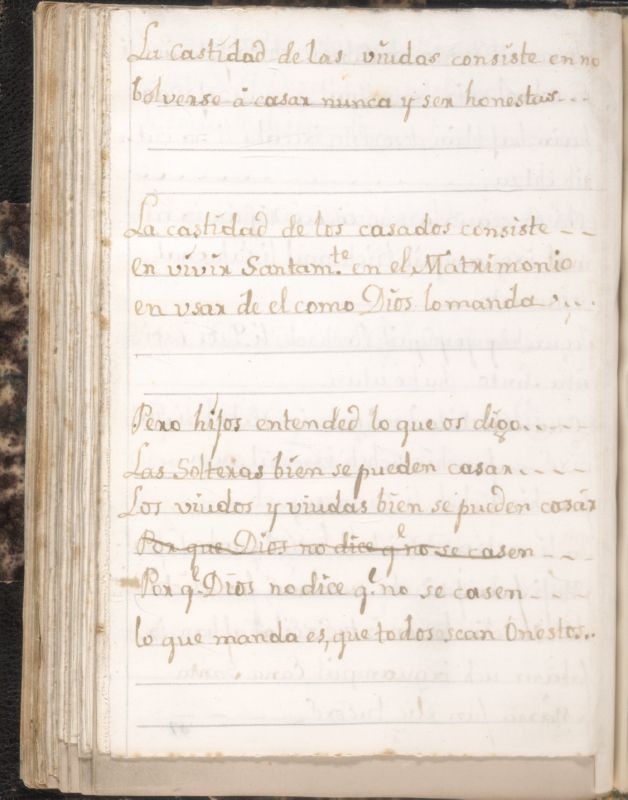 La castidad de las viudas consiste en no
bolverse â casar nunca y ser honestas...
La castidad de los casados consiste - -
en vivir Santam.te en el Matrimonio
en vsar de el como Dios lo manda ...
Pero hijos entended lo que os digo. - - -
Las Solteras bien se pueden casar. - - -
Los viudos y viudas bien se pueden casar
Por que Dios no dice q.e no se casen - -
Por q.e Dios no dice q.e no se casen - - -
lo que manda es, que todos sean Onestos..